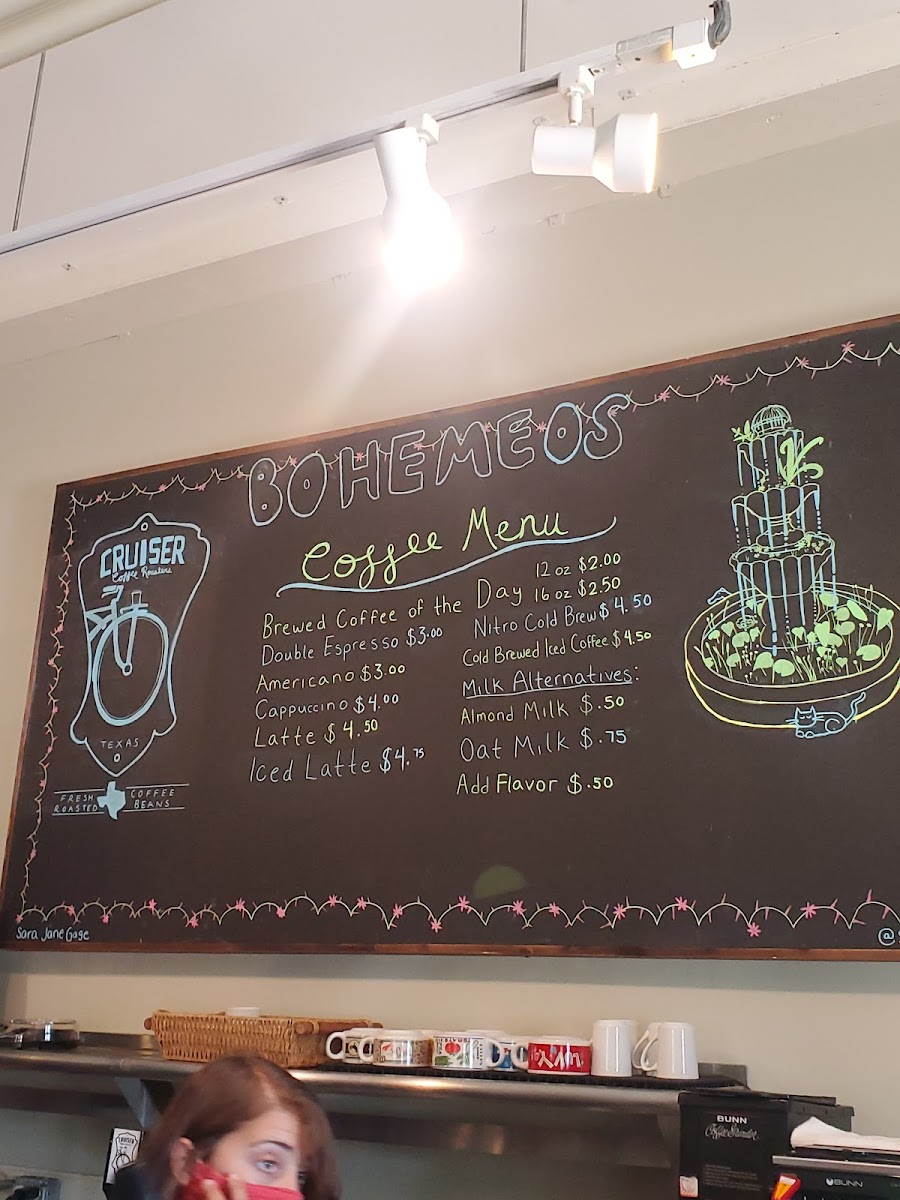 BOHEMEOS
Coffee Menu
CRUISER
Coffee Roasters
TEXAS
FRESH ROASTED
COFFEE BEANS
Brewed Coffee of the Day 12 oz $2.00
16 oz $2.50
Double Espresso $3.00
Americano $3.00
Cappuccino $4.00
Latte $4.50
Iced Latte $4.75
Nitro Cold Brew $4.50
Cold Brewed Iced Coffee $4.50
Milk Alternatives:
Almond Milk $.50
Oat Milk $.75
Add Flavor $.50
Sara Jane Gage
@
CRUISER
BUNN
BUNN